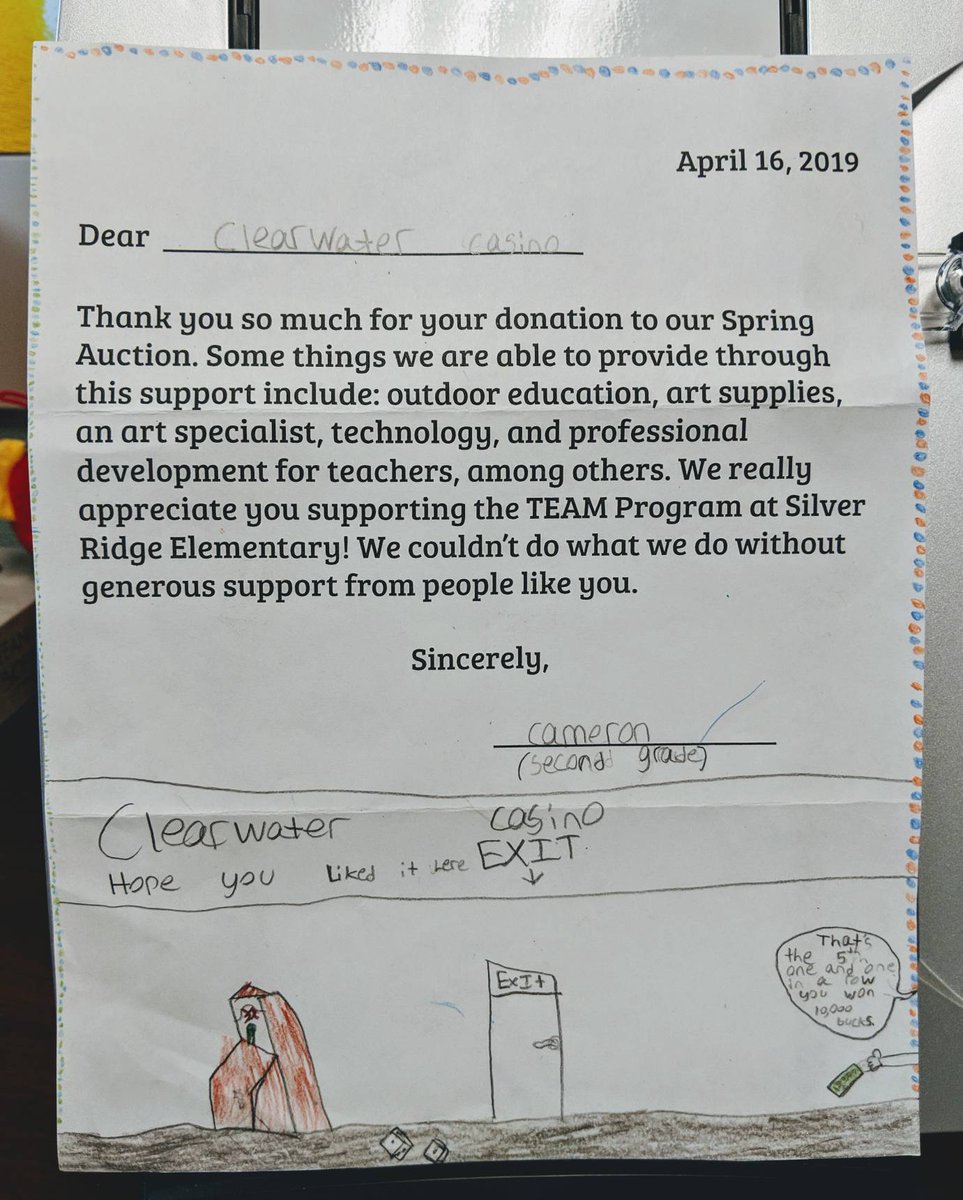 April 16, 2019
Dear Clearwater casino
Thank you so much for your donation to our Spring
Auction. Some things we are able to provide through
this support include: outdoor education, art supplies,
an art specialist, technology, and professional
development for teachers, among others. We really
appreciate you supporting the TEAM Program at Silver
Ridge Elementary! We couldn't do what we do without
generous support from people like you.
Sincerely,
cameron
(second grade)
Clearwater casino
Hope you Liked it here EXIT
ExIt
That's
the 5th
one and one
in a row
you won
10,000
bucks.